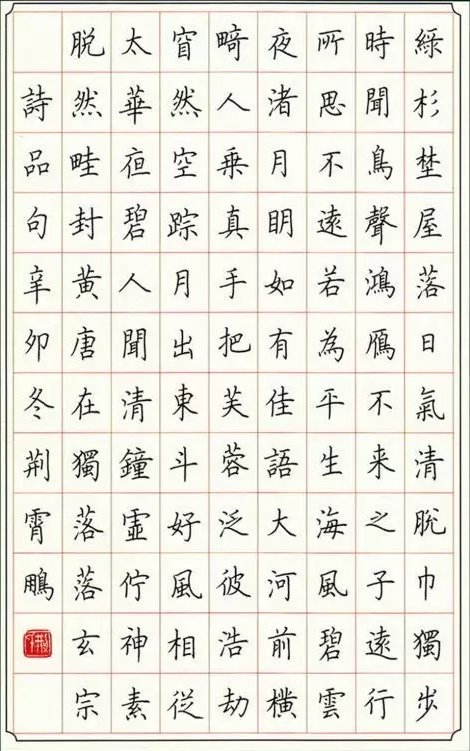 綠杉埜屋落日氣清脫巾獨步
時聞鳥聲鴻鴈不来之子遠行
所思不遠若為平生海風碧雲
夜渚月明如有佳語大河前橫
畸人乗真手把芙蓉泛彼浩劫
窅然空踪月出東斗好風相從
太華夜碧人聞清鐘虛佇神素
脫然畦封黃唐在獨落落玄宗
詩品句辛卯冬荆霄鵬